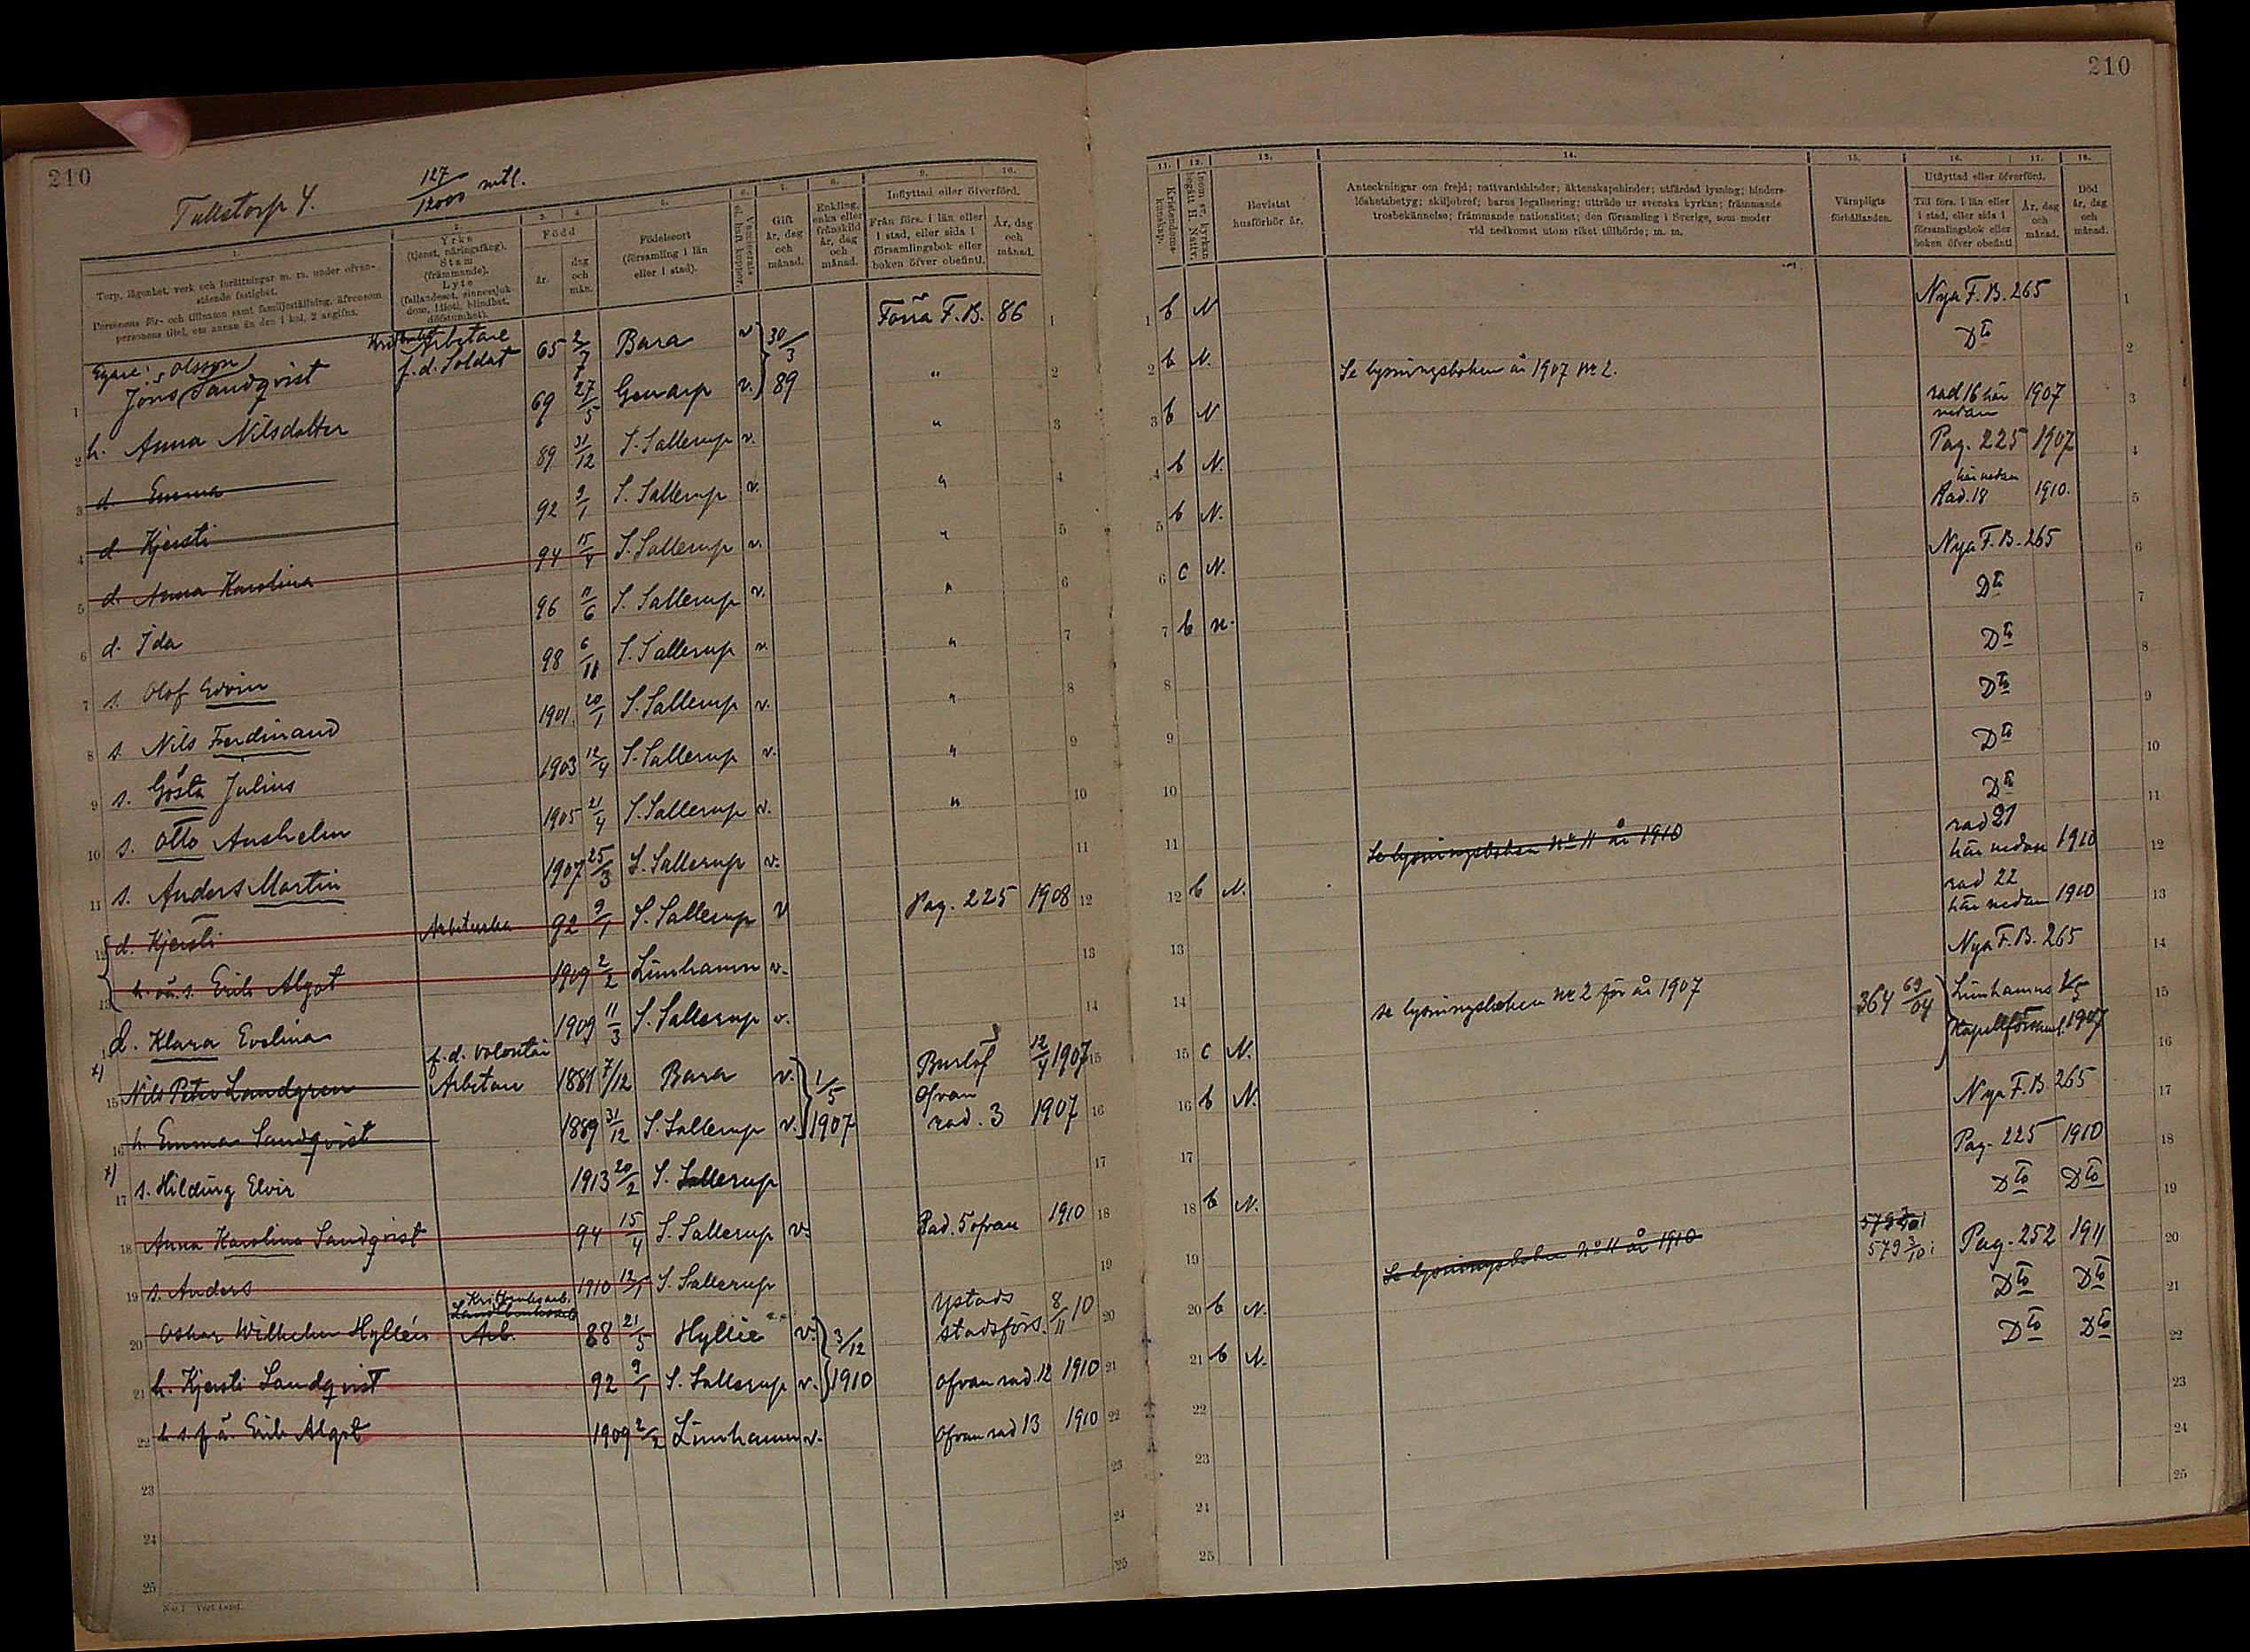 210
Tullstorp 4. 127/12000 mtl.
1. 2. 3. 4. 5. 6. 7. 8. 9. 10.
Torp, lägenhet, verk och inrättningar m. m. under ofvan-
stående fastighet.
Personens för- och tillnamn samt familjeställning, äfvensom
personens titel, om annan än den i kol. 2 angifna.
Yrke
(tjenst, näringsfång).
Stam
(främmande).
Lyte
(fallandesot, sinnessjuk-
dom, idioti, blindhet,
döfstumhet).
Född
år.
dag
och
mån.
Födelseort
(församling i län
eller i stad).
Vaccinerats
el. haft koppor.
Gift
år, dag
och
månad.
Enkling,
enka eller
frånskild
år, dag
och
månad.
Inflyttad eller öfverförd.
Från förs. i län eller
i stad, eller sida i
församlingsbok eller
boken öfver obefintl.
År, dag
och
månad.
Egare: Olsson Arbetare
1 Jöns Sandqvist f.d. Soldat 65 2/7 Bara v. 30/3 Förra F.B. 86 1
2 h. Anna Nilsdotter 69 27/5 Genarp v. 89 " 2
3 d. Emma 89 31/12 S. Sallerup v. " 3
4 d. Kjersti 92 9/1 S. Sallerup v. " 4
5 d. Anna Karolina 94 15/4 S. Sallerup v. " 5
6 d. Ida 96 11/6 S. Sallerup v. " 6
7 s. Olof Edvin 98 6/11 S. Sallerup v. " 7
8 s. Nils Ferdinand 1901 20/1 S. Sallerup v. " 8
9 s. Gösta Julius 1903 12/4 S. Sallerup v. " 9
10 s. Otto Anshelm 1905 21/4 S. Sallerup v. " 10
11 s. Anders Martin 1907 25/3 S. Sallerup v. 11
12 d. Kjersti Arbeterska 92 9/1 S. Sallerup v Pag. 225 1908 12
13 h. oä. s. Erik Algot 1909 2/2 Limhamn v. 13
14 d. Klara Evelina 1909 11/3 S. Sallerup v. 14
f.d. Volontär
15 Nils Peter Landgren Arbetare 1881 7/12 Bara v. 1/5 Burlöf 12/4 1907 15
16 h. Emma Sandqvist 1889 31/12 S. Sallerup v. 1907 Ofvan rad. 3 1907 16
17 s. Hilding Elvir 1913 20/2 S. Sallerup 17
18 Anna Karolina Sandqvist 94 15/4 S. Sallerup v. Rad. 5 ofvan 1910 18
19 s. Anders 1910 12/1 S. Sallerup 19
20 Oskar Wilhelm Hyllén Arb. 88 21/5 Hyllie v. 3/12 Ystads stadsförs. 8/11 10 20
21 h. Kjersti Sandqvist 92 9/1 S. Sallerup v. 1910 ofvan rad. 12 1910 21
22 h. s. f ä. Erik Algot 1909 2/2 Limhamn v. Ofvan rad 13 1910 22
23 23
24 24
25 25
210
11. 12. 13. 14. 15. 16. 17. 18.
Kristendoms-
kunskap.
Inom sv. kyrkan
begått H. Nattv.
Bevistat
husförhör år.
Anteckningar om frejd; nattvardshinder; äktenskapshinder; utfärdad lysning; hinders-
löshetsbetyg; skiljobref; barns legalisering; utträde ur svenska kyrkan; främmande
trosbekännelse; främmande nationalitet; den församling i Sverige, som moder
vid nedkomst utom riket tillhörde; m. m.
Värnpligts
förhållanden.
Utflyttad eller öfverförd.
Till förs. i län eller
i stad, eller sida i
församlingsbok eller
boken öfver obefintl.
År, dag
och
månad.
Död
år, dag
och
månad.
1 b N Nya F.B. 265 1
2 b N. Dto 2
3 b N Se lysningsboken år 1907 No 2. rad 16 här nedan 1907 3
4 b N. Pag. 225 1907 4
5 b N. här nedan Rad. 18 1910. 5
6 c N. Nya F.B. 265 6
7 b n. Dto 7
8 Dto 8
9 Dto 9
10 Dto 10
11 Dto 11
12 b N. Se lysningsboken No 11 år 1910 rad 21 här nedan 1910 12
13 rad 22 här nedan 1910 13
14 Nya F.B. 265 14
15 c N. se lysningsboken No 2 för år 1907 364 69/04 Limhamns 1/5 15
16 b N. Kapellförsaml. 1907 16
17 Nya F.B. 265 17
18 b N. Pag. 225 1910 18
19 Dto Dto 19
20 b N. Se lysningsboken No 11 år 1910 579 3/10 i Pag. 252 1911 20
21 b N. Dto Dto 21
22 Dto Dto 22
23 23
24 24
25 25